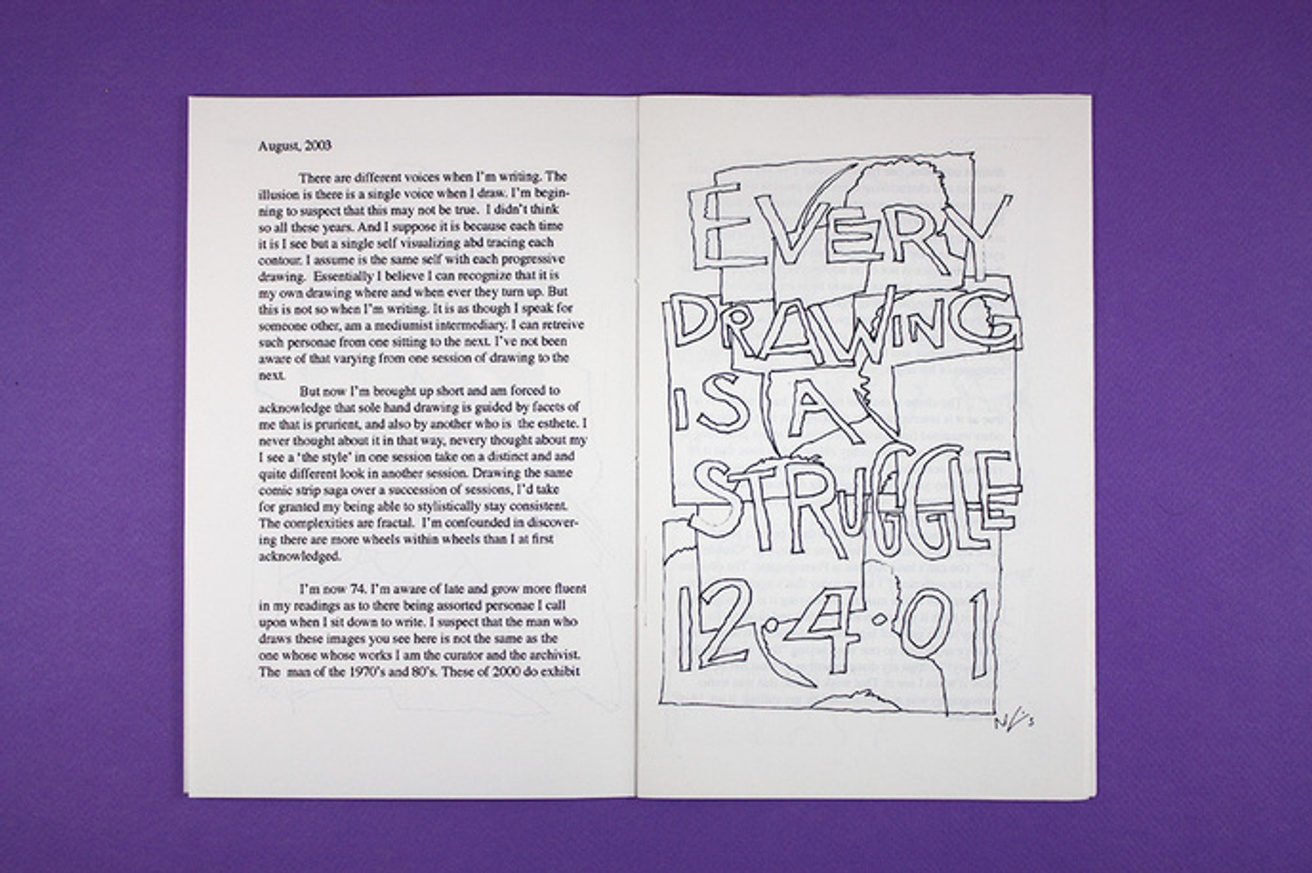 August, 2003
There are different voices when I'm writing. The
illusion is there is a single voice when I draw. I'm begin-
ning to suspect that this may not be true. I didn't think
so all these years. And I suppose it is because each time
it is I see but a single self visualizing abd tracing each
contour. I assume is the same self with each progressive
drawing. Essentially I believe I can recognize that it is
my own drawing where and when ever they turn up. But
this is not so when I'm writing. It is as though I speak for
someone other, am a mediumist intermediary. I can retreive
such personae from one sitting to the next. I've not been
aware of that varying from one session of drawing to the
next.
But now I'm brought up short and am forced to
acknowledge that sole hand drawing is guided by facets of
me that is prurient, and also by another who is the esthete. I
never thought about it in that way, nevery thought about my
I see a 'the style' in one session take on a distinct and and
quite different look in another session. Drawing the same
comic strip saga over a succession of sessions, I'd take
for granted my being able to stylistically stay consistent.
The complexities are fractal. I'm confounded in discover-
ing there are more wheels within wheels than I at first
acknowledged.
I'm now 74. I'm aware of late and grow more fluent
in my readings as to there being assorted personae I call
upon when I sit down to write. I suspect that the man who
draws these images you see here is not the same as the
one whose whose works I am the curator and the archivist.
The man of the 1970's and 80's. These of 2000 do exhibit
EVERY
DRAWING
IS A
STRUGGLE
12·4·01